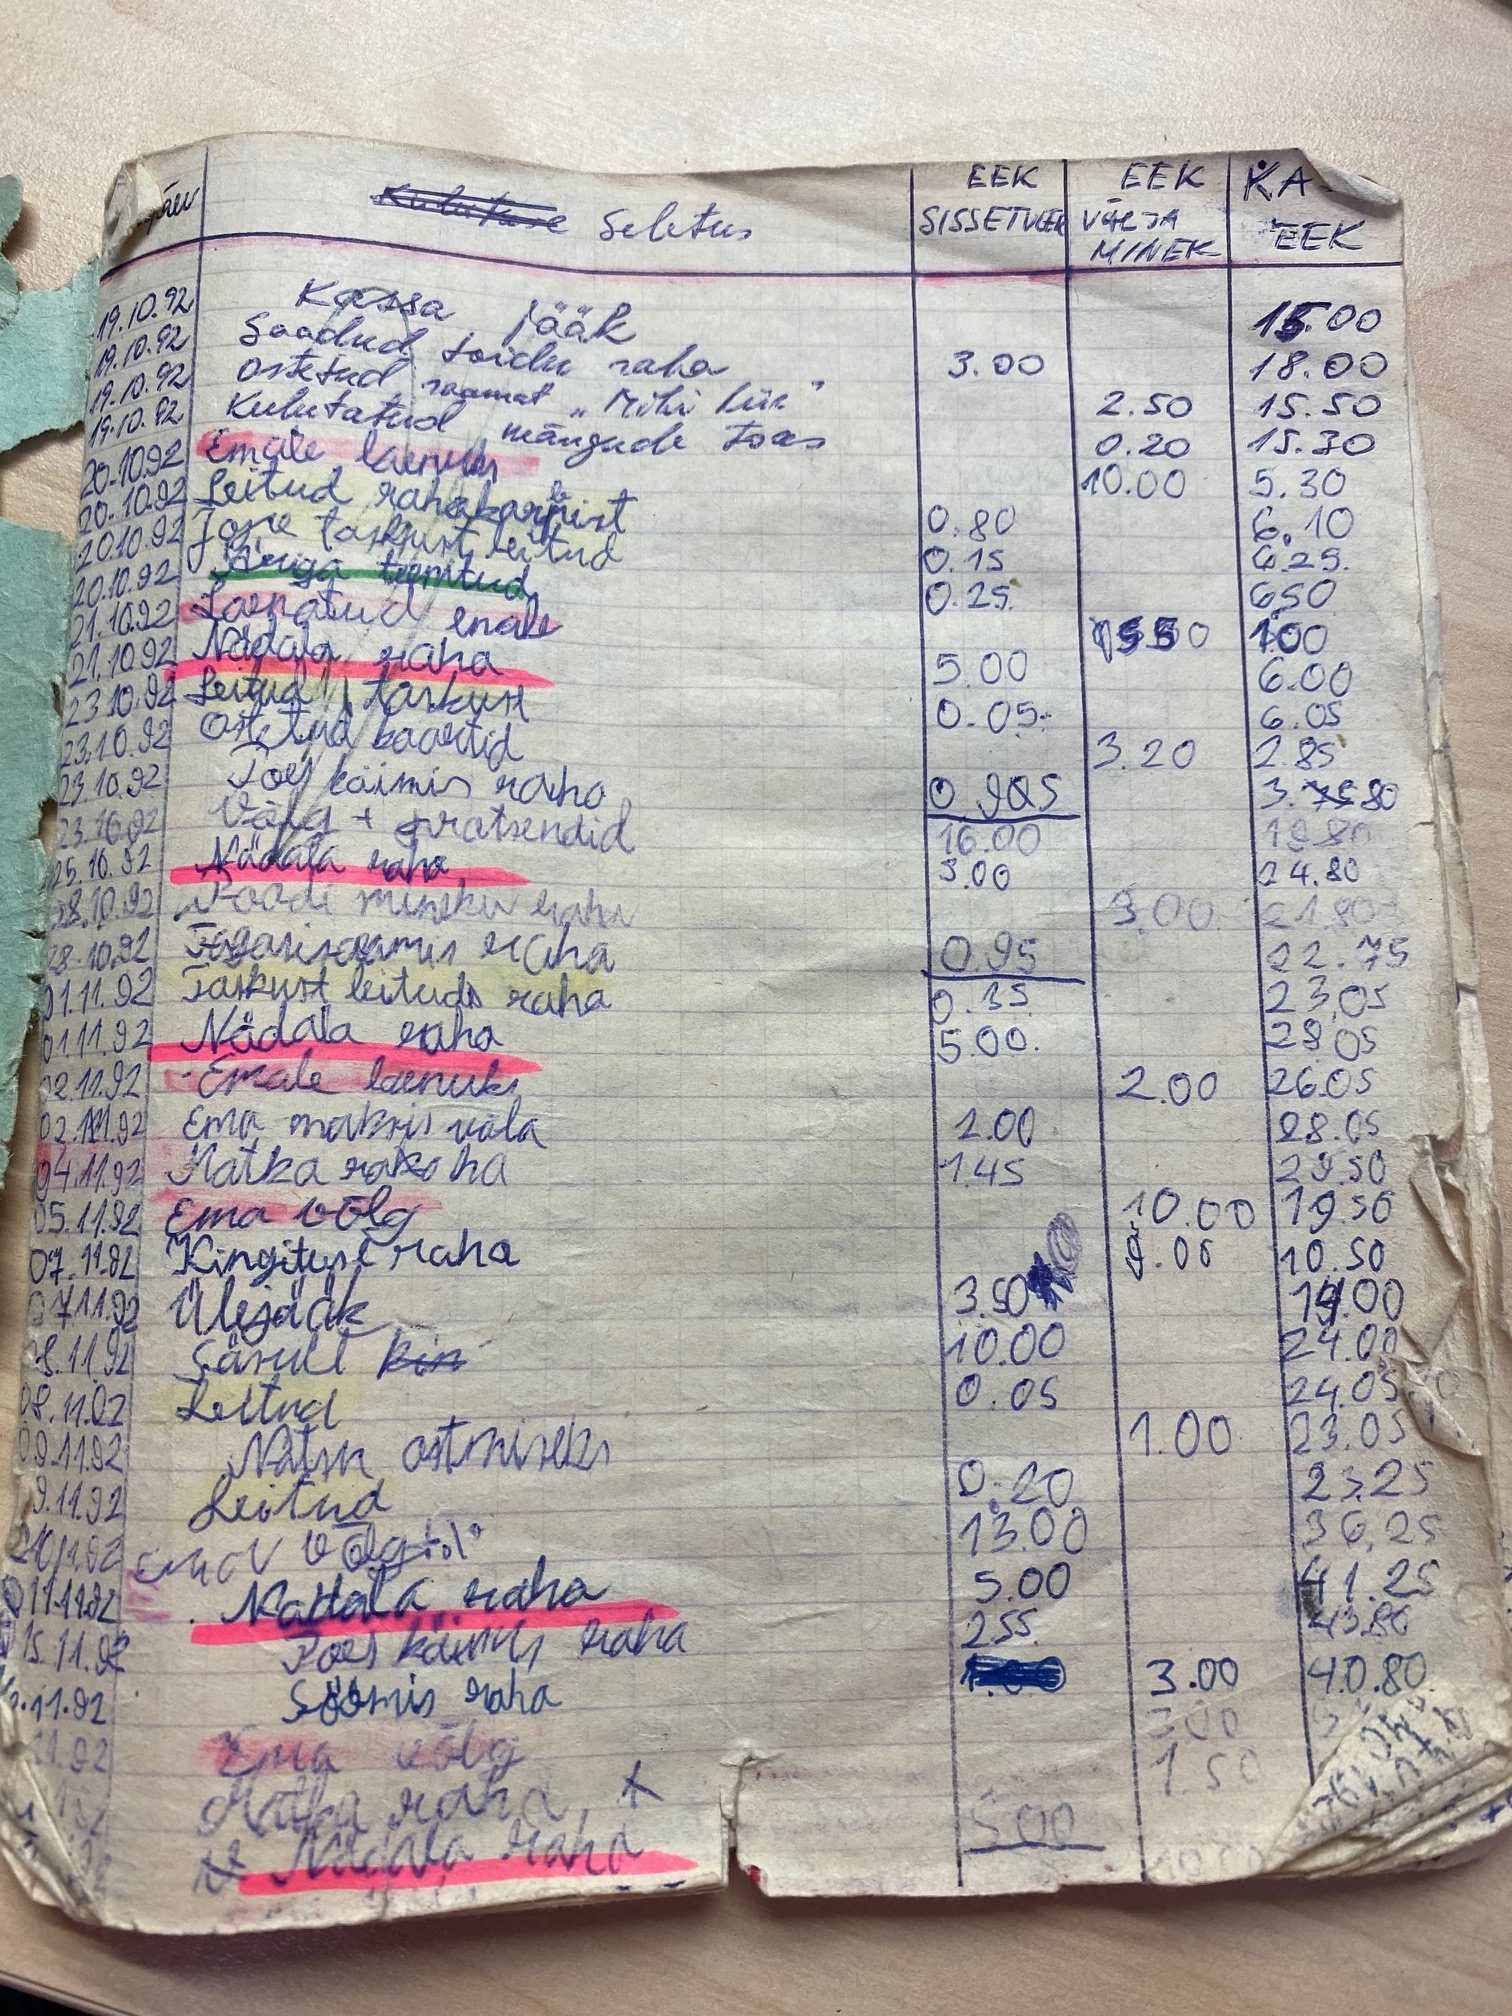 päev Kulutuse Seletus EEK SISSETULEK EEK VÄLJA MINEK KA- EEK
19.10.92 Kassa jääk 15.00
19.10.92 Saadud toidu raha 3.00 18.00
19.10.92 Ostetud raamat „Miki Hiir" 2.50 15.50
19.10.92 Kulutatud mängude toas 0.20 15.30
20.10.92 Emale laenuks 10.00 5.30
20.10.92 Leitud rahakarbist 0.80 6.10
20.10.92 taskust leitud 0.15 6.25.
20.10.92 Äriga teenitud 0.25. 650
21.10.92 Laenatud emale 550 100
21.10.92 Nädala raha 5.00 6.00
23.10.92 Leitud taskust 0.05. 6.05
23.10.92 Ostetud kaartid 3.20 2.85
23.10.92 Poes käimis raha 0.95 3.80
23.10.92 Võlg + protsendid 16.00 19.80
25.10.92 Nädala raha 5.00 24.80
28.10.92 Poodi mineku raha 3.00 21.80
28.10.92 Tagasisaamis raha 0.95 22.75
01.11.92 Taskust leituds raha 0.35. 23.05
01.11.92 Nädala raha 5.00. 28.05
02.11.92 Emale laenuks 2.00 26.05
02.11.92 Ema maksis võla 2.00 28.05
04.11.92 Matka raha 1.45 29.50
05.11.92 Ema võlg 10.00 19.50
07.11.92 Kingituse raha 9.00 10.50
07.11.92 Ülejääk 3.50 14.00
8.11.92 Särult kin 10.00 24.00
08.11.92 Leitud 0.05 24.05
09.11.92 Nätsu ostmiseks 1.00 23.05
9.11.92 Leitud 0.20 23.25
10.11.92 võlg 13.00 36.25
11.11.92 Nädala raha 5.00 41.25
15.11.92 Poes käimis raha 2.55. 43.80
.11.92 Söömis raha 1.00 3.00 40.80
11.92 Ema võlg 3.00
Matka raha 1.50
Nädala raha 5.00